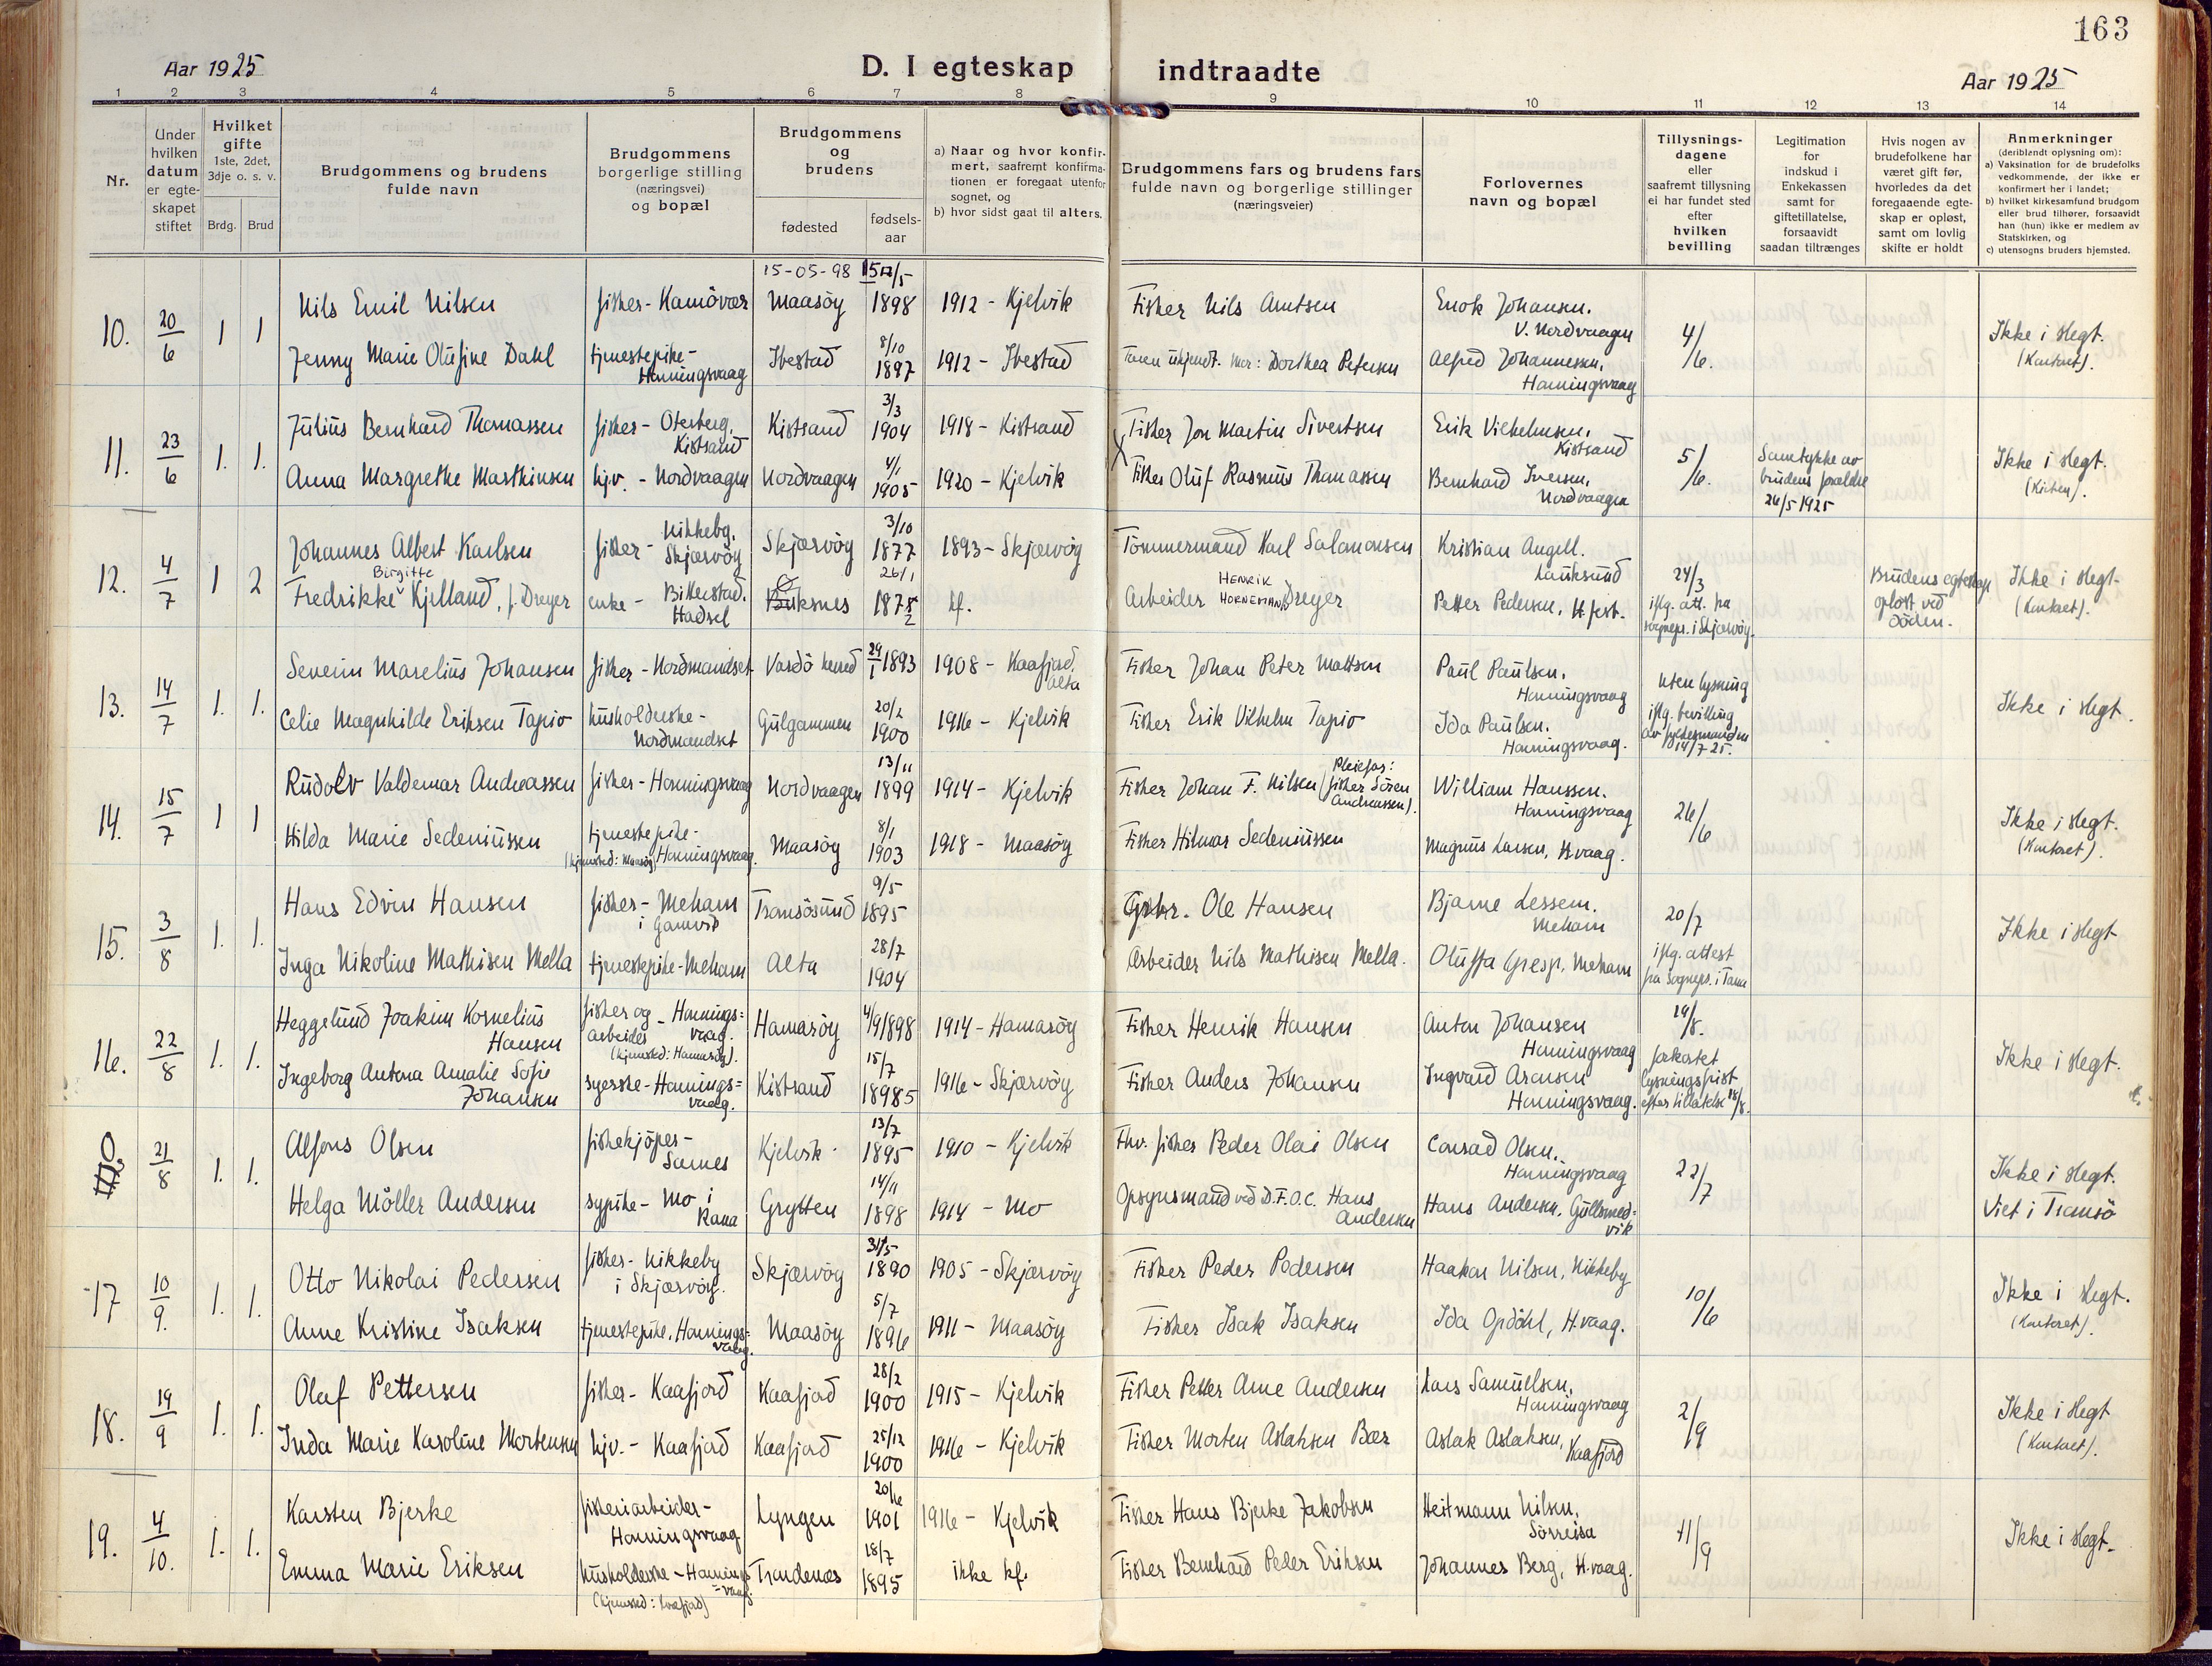 163
Aar 1925
D. I egteskap indtraadte
Aar 1925
1 2 3 4 5 6 7 8 9 10 11 12 13 14
Nr.
Under hvilken datum er egteskapet stiftet
Hvilket gifte 1ste, 2det, 3dje o. s. v.
Brdg. Brud
Brudgommens og brudens fulde navn
Brudgommens borgerlige stilling (næringsvei) og bopæl
Brudgommens og brudens
fødested
fødselsaar
a) Naar og hvor konfirmert, saafremt konfirmationen er foregaat utenfor sognet, og
b) hvor sidst gaat til alters.
Brudgommens fars og brudens fars fulde navn og borgerlige stillinger (næringsveier)
Forlovernes navn og bopæl
Tillysningsdagene eller saafremt tillysning ei har fundet sted efter hvilken bevilling
Legitimation for indskud i Enkekassen samt for giftetillatelse, forsaavidt saadan tiltrænges
Hvis nogen av brudefolkene har været gift før, hvorledes da det foregaaende egteskap er opløst, samt om lovlig skifte er holdt
Anmerkninger (deriblandt oplysning om):
a) Vaksination for de brudefolks vedkommende, der ikke er konfirmert her i landet;
b) hvilket kirkesamfund brudgom eller brud tilhører, forsaavidt han (hun) ikke er medlem av Statskirken, og
c) utensogns bruders hjemsted.
15-05-98
10. 20/6 1 1 Nils Emil Nilsen fisker - Kamövær Maasöy 1898 1912 - Kjelvik Fisker Nils Arntsen Enok Johansen. V. Nordvaagen 4/6. Ikke i slegt. (Kontoret).
Jenny Marie Olufine Dahl tjenestepike - Honningsvaag Ibestad 8/10 1897 1912 - Ibestad Faren ukjendt. Mor: Dorthea Petersen Alfred Johannessen, Honningsvaag
11. 23/6 1. 1. Julius Bernhard Thomassen fisker - Oterberg, Kistrand Kistrand 3/3 1904 1918 - Kistrand Fisker Jon Martin Sivertsen Erik Vilhelmsen, Kistrand 5/6. Samtykke av brudens forældre 26/5 1925 Ikke i slegt. (Kirken).
Anna Margrethe Marthinsen hjv. - Nordvaagen Nordvaagen 4/1 1905 1920 - Kjelvik Fisker Oluf Rasmus Thomassen Bernhard Iversen, Nordvaagen
12. 4/7 1 2 Johannes Albert Karlsen fisker - Nikkeby, Skjærvöy Skjærvöy 3/10 1877 1893 - Skjærvöy Tömmermand Karl Salamonsen Kristian Angell. Lauksund 24/3 iflg. att. fra sognepr. i Skjærvöy. Brudens egteskap oplöst ved döden. Ikke i slegt. (Kontoret).
Fredrikke Birgitte Kjelland, f. Dreyer enke - Bitterstad, Hadsel Buksnes 26/1 1875 kf. Arbeider HENRIK HORNEMAN Dreyer Petter Pedersen, H.fest.
13. 14/7 1. 1. Severin Marelius Johansen fisker - Nordmandset Vardö herred 29/1 1893 1908 - Kaafjord, Alta Fisker Johan Peter Mattsen Paul Paulsen, Honningsvaag uten lysning iflg. bevilling av fylkesmanden 14/7 25. Ikke i slegt.
Celie Magnhilde Eriksen Tapio husholderske - Nordmandset Gulgammen 20/2 1900 1916 - Kjelvik Fisker Erik Vilhelm Tapio Ida Paulsen. Honningsvaag.
14. 15/7 1 1 Rudolv Valdemar Andreassen fisker - Honningsvaag Nordvaagen 13/11 1899 1914 - Kjelvik Fisker Johan F. Nilsen (Pleiefar: fisker Sören Andreassen). William Hanssen. Honningsvaag 26/6 Ikke i slegt. (Kontoret).
Hilda Marie Sedeniussen tjenestepike - (hjemsted: Maasöy) Honningsvaag. Maasöy 8/1 1903 1918 - Maasöy Fisker Hilmar Sedeniussen Magnus Larsen, H.vaag.
15. 3/8 1. 1. Hans Edvin Hansen fisker - Mehamn i Gamvik Tromsösund 9/5 1895 Grbr. Ole Hansen Bjarne Lessem. Mehamn 20/7 iflg. attest fra sognepr. i Tana Ikke i slegt
Inga Nikoline Mathisen Mella tjenestepike - Mehamn Alta 28/7 1904 Arbeider Nils Mathisen Mella. Oluffa Gresp, Mehamn
16. 22/8 1. 1. Heggelund Joakim Kornelius Hansen fisker og arbeider - Honningsvaag. (hjemsted: Hamarøy). Hamarøy 4/9 1898 1914 - Hamarøy Fisker Henrik Hansen Anton Johansen Honningsvaag 19/8. forkortet lysningsfrist efter tillatelse 18/8. Ikke i slegt.
Ingeborg Antona Amalie Sofie Johansen syerske - Honningsvaag. Kistrand 15/7 1898 5 1916 - Skjærvöy Fisker Anders Johansen Ingvard Aronsen Honningsvaag.
0 21/8 1. 1. Alfons Olsen fiskekjöper - Sarnes Kjelvik 13/7 1895 1910 - Kjelvik Fhv. fisker Peder Olai Olsen Conrad Olsen. Honningsvaag 22/7 Ikke i slegt. Viet i Tromsö
Helga Möller Andersen sypike - Mo i Rana Grytten 14/11 1898 1914 - Mo Opsynsmand ved D.F.O.C. Hans Andersen Hans Andersen, Gullsmedvik
17 10/9. 1. 1. Otto Nikolai Pedersen fisker - Nikkeby i Skjærvöy. Skjærvöy 31/5 1890 1905 - Skjærvöy Fisker Peder Pedersen Haakon Nilsen, Nikkeby 10/6 Ikke i slegt. (Kontoret).
Anne Kristine Isaksen tjenestepike, Honningsvaag. Maasöy 5/7 1896 1911 - Maasöy Fisker Isak Isaksen Ida Opdahl, H.vaag.
18. 19/9 1. 1. Olaf Pettersen fisker - Kaafjord Kaafjord 28/2 1900 1915 - Kjelvik Fisker Petter Arne Andersen Lars Samuelsen, Honningsvaag 2/9 Ikke i slegt (Kontoret).
Inda Marie Karoline Mortensen hjv. - Kaafjord Kaafjord 25/12 1900 1916 - Kjelvik Fisker Morten Aslaksen Bær Aslak Aslaksen, Kaafjord
19. 4/10. 1. 1. Karsten Bjerke fiskeriarbeider - Honningsvaag Lyngen 20/6 1901 1916 - Kjelvik Fisker Hans Bjerke Jakobsen Heitmann Nilsen, Sörreisa 11/9 Ikke i slegt.
Emma Marie Eriksen husholderske - Honningsvaag (hjemsted: Kaafjord) Trondenæs 18/7 1895 ikke kf. Fisker Bernhard Peder Eriksen Johannes Berg, H.vaag.